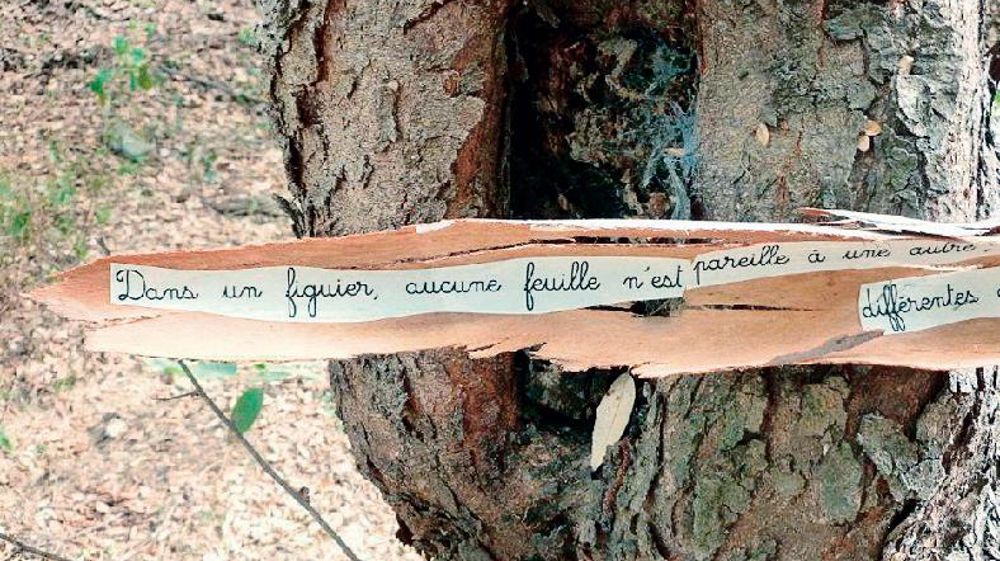 Dans un figuier, aucune feuille n'est pareille à une autre
différentes